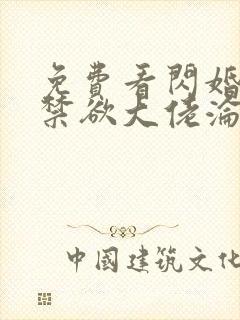 免費看閃婚
禁欲大佬淪
中國建筑文化